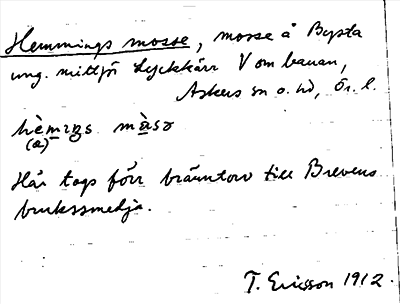 Hemmings mosse, mosse å Bysta
ung. mittför Lyckkärr V om banan,
Askers sn o. hd, Ör. l.
hèmıŋs màsɔ
(a)
Här togs förr bränntorv till Brevens
brukssmedja.
T. Ericsson 1912.